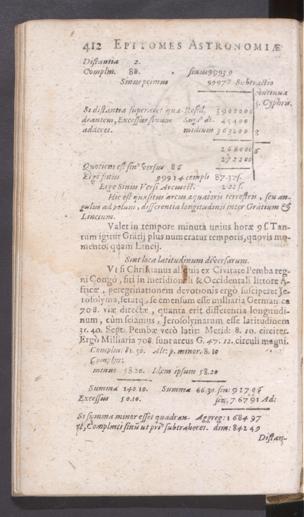 412 EPITOMES ASTRONOMIÆ
Distantia 2.
Complm. 88. sinus 99939
Sinus primus Subtractio
continua
3. Cyphræ.
Si distantia superaret qua- Resid. 3900000
drantem, Excessus sinum
adderet. medium 363200
268000
272200
Quotiens est sinus versus 86
Ergo sinus 99914 compl: 87.37.
Ergo Sinus Versi Arcus est. 2.23.
Hic est quæsitus arcus æquatoris terrestris, seu an-
gulus ad polum, differentia longitudinis inter Grätium &
Lincium.
Valet in tempore minuta unius horæ 9. Tan-
tum igitur Grätij plus numeratur temporis, quovis mo-
mento, quam Lincij.
Sint loca latitudinum diversarum.
Ut si Christianus aliquis ex Civitate Pemba reg-
ni Congo, siti in meridionali & Occidentali littore A-
fricæ, peregrinationem devotionis ergò suscipiat Je-
rosolyma, feratq, se emensum esse milliaria German ca
708. viæ directæ, quanta erit differentia longitudi-
num, cùm sciamus, Jerosolymarum esse latitudinem
31. 40. Sept. Pembæ verò latit: Merid: 8. 10. circiter.
Ergò Milliaria 708 sunt arcus G. 47. 12. circuli magni.
Complm: 81. 50. Alt: p. minor. 8.10
Complm:
minus 58.20. Idem ipsum 58.20
Summa 140.10. Summa 66.30. sin: 91706
Excessus 50.10. sin. 76791 Ad:
Si summa minor esset quadran- Aggreg: 168497
te, Complmti sinus ut prius subtraheret. dim: 84249
Distan-